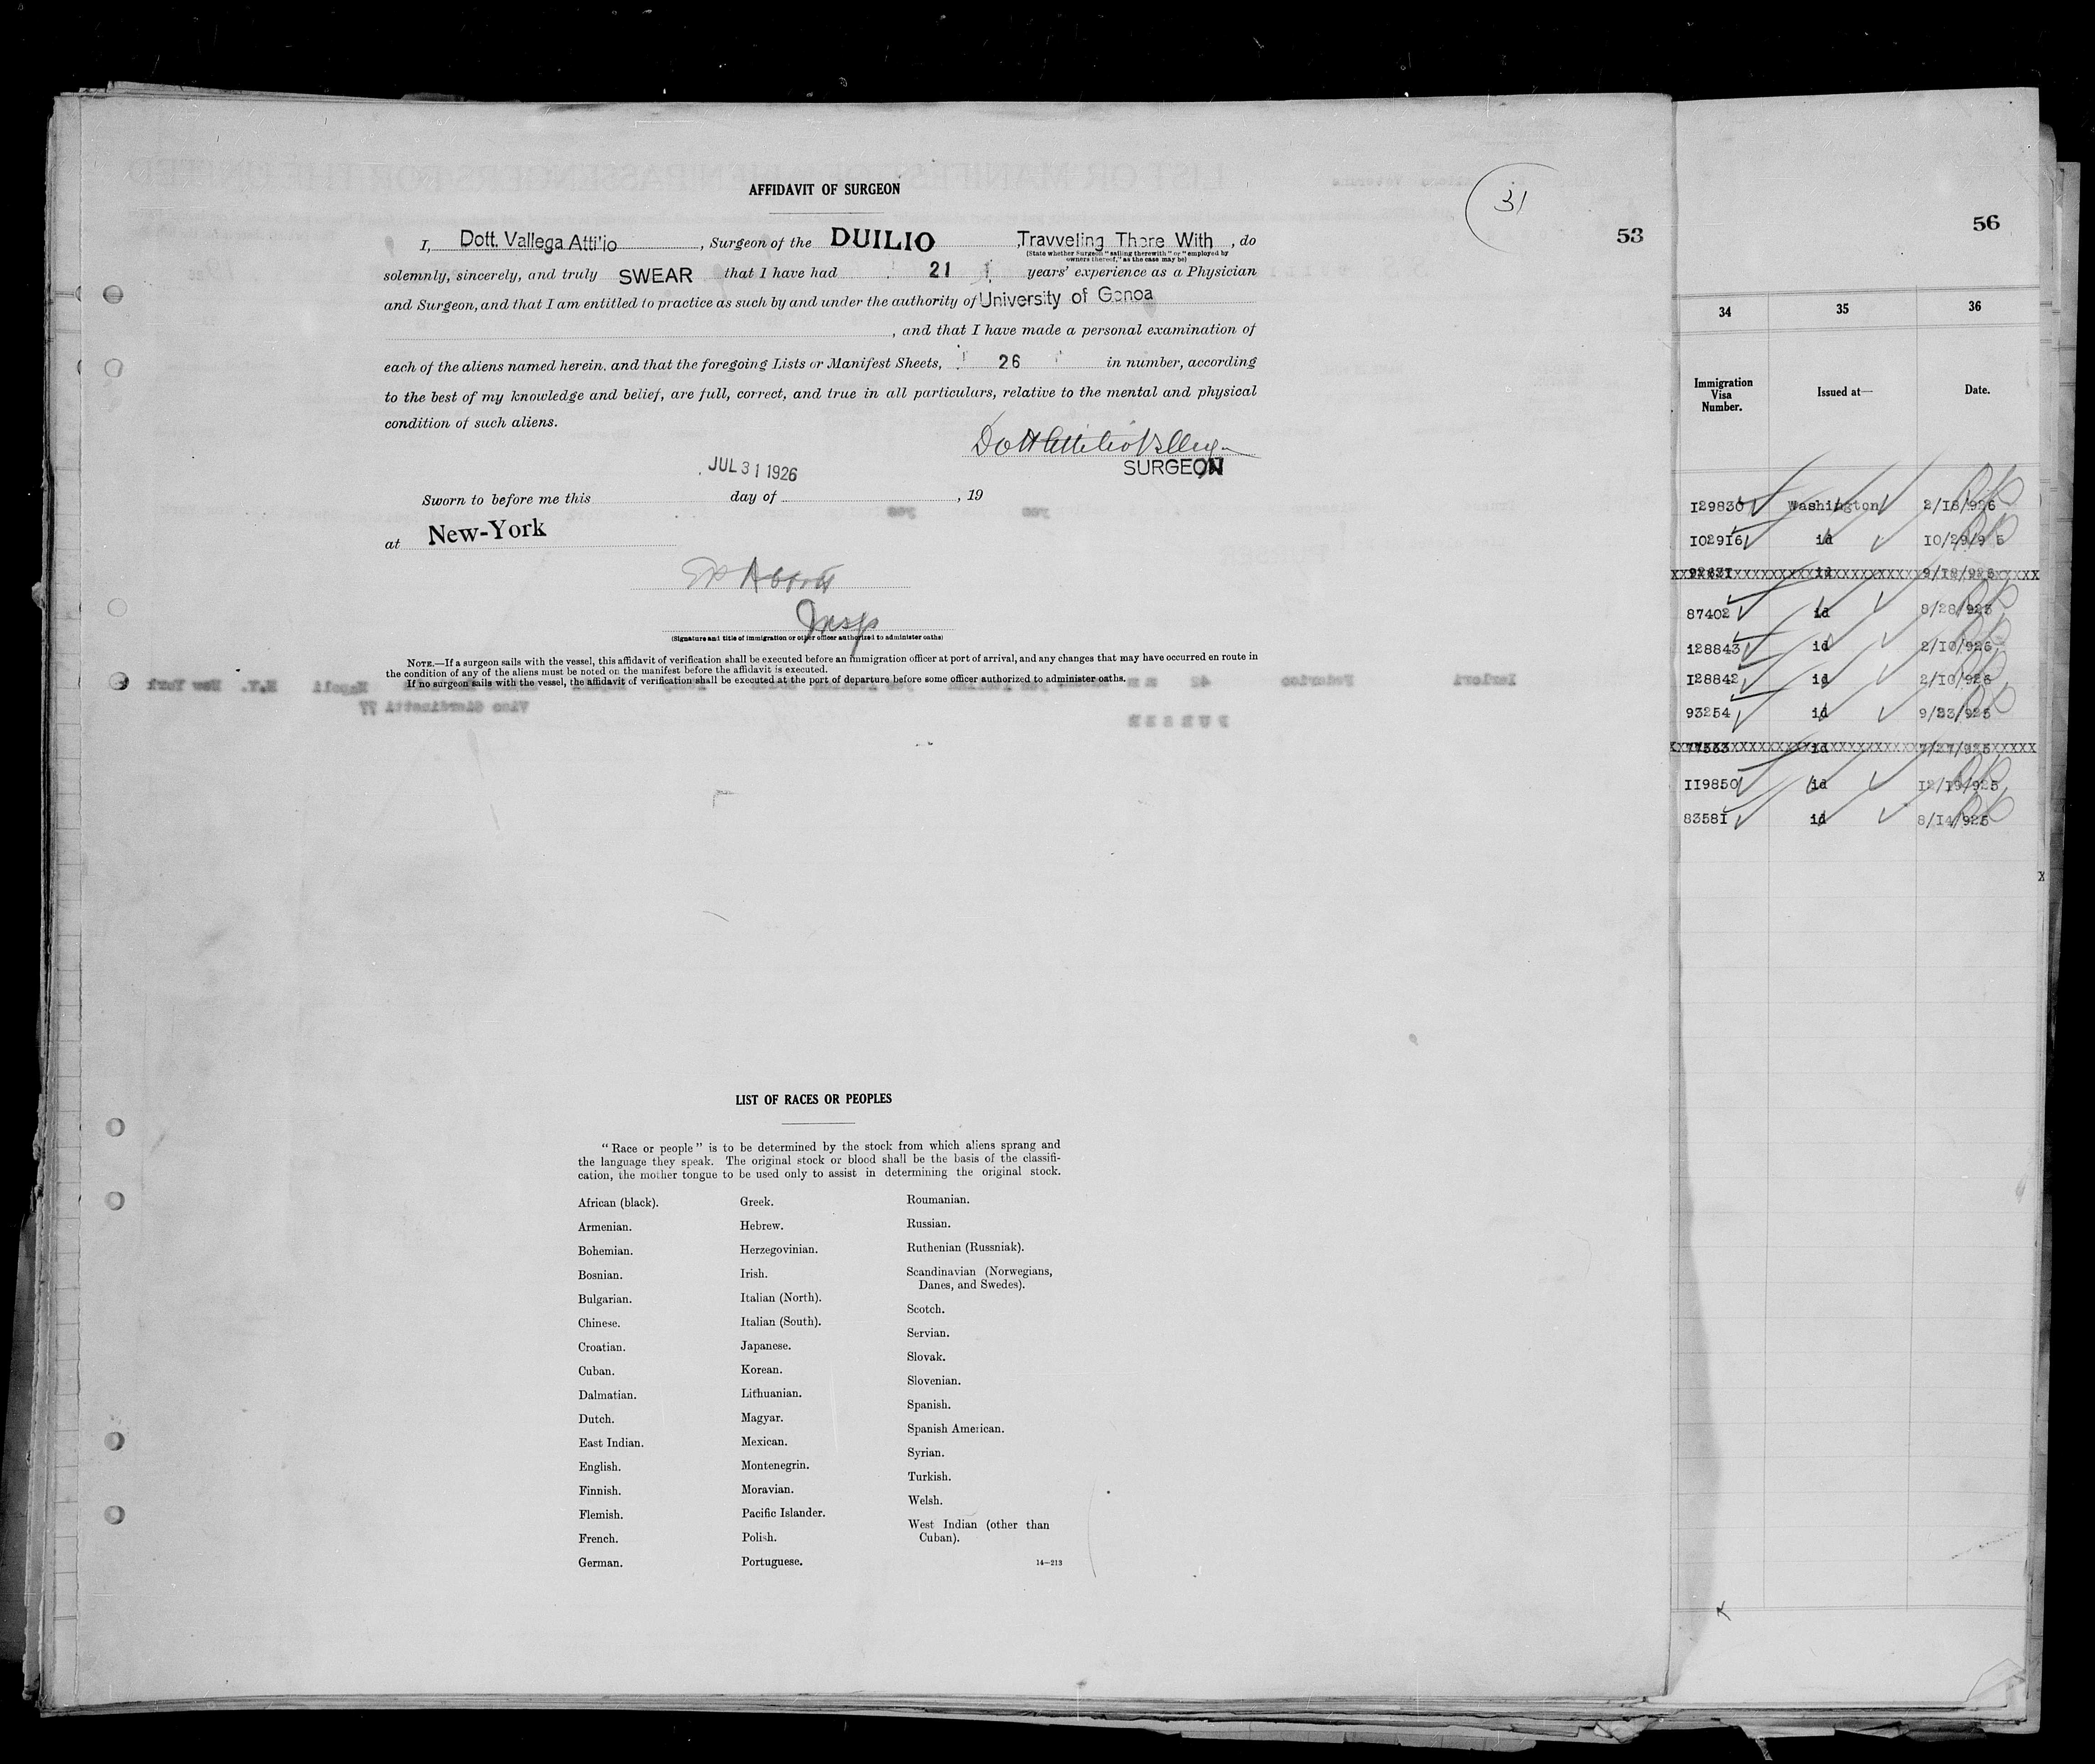 AFFIDAVIT OF SURGEON
31
53
I, Dott. Vallega Attilio, Surgeon of the DUILIO, Travveling There With, do
(State whether Surgeon "sailing therewith" or "employed by
owners thereof," as the case may be)
solemnly, sincerely, and truly SWEAR that I have had 21 years' experience as a Physician
and Surgeon, and that I am entitled to practice as such by and under the authority of University of Genoa
, and that I have made a personal examination of
each of the aliens named herein. and that the foregoing Lists or Manifest Sheets, 26 in number, according
to the best of my knowledge and belief, are full, correct, and true in all particulars, relative to the mental and physical
condition of such aliens.
SURGEON
JUL 31 1926
Sworn to before me this day of , 19
at New-York
Abbott
Insp
(Signature and title of immigration or other officer authorized to administer oaths)
NOTE.—If a surgeon sails with the vessel, this affidavit of verification shall be executed before an immigration officer at port of arrival, and any changes that may have occurred en route in
the condition of any of the aliens must be noted on the manifest before the affidavit is executed.
If no surgeon sails with the vessel, the affidavit of verification shall be executed at the port of departure before some officer authorized to administer oaths.
LIST OF RACES OR PEOPLES
"Race or people" is to be determined by the stock from which aliens sprang and
the language they speak. The original stock or blood shall be the basis of the classifi-
cation, the mother tongue to be used only to assist in determining the original stock.
African (black).
Armenian.
Bohemian.
Bosnian.
Bulgarian.
Chinese.
Croatian.
Cuban.
Dalmatian.
Dutch.
East Indian.
English.
Finnish.
Flemish.
French.
German.
Greek.
Hebrew.
Herzegovinian.
Irish.
Italian (North).
Italian (South).
Japanese.
Korean.
Lithuanian.
Magyar.
Mexican.
Montenegrin.
Moravian.
Pacific Islander.
Polish.
Portuguese.
Roumanian.
Russian.
Ruthenian (Russniak).
Scandinavian (Norwegians,
Danes, and Swedes).
Scotch.
Servian.
Slovak.
Slovenian.
Spanish.
Spanish American.
Syrian.
Turkish.
Welsh.
West Indian (other than
Cuban).
14—213
56
34 35 36
Immigration
Visa
Number.
Issued at—
Date.
129830 Washington 2/18/926
102916 id 10/29/9 5
id 9/18/925
87402 id 8/28/925
128843 id 2/10/926
128842 id 2/10/926
93254 id 9/23/925
77563 id 7/27/925
119850 id 12/19/925
83581 id 8/14/925